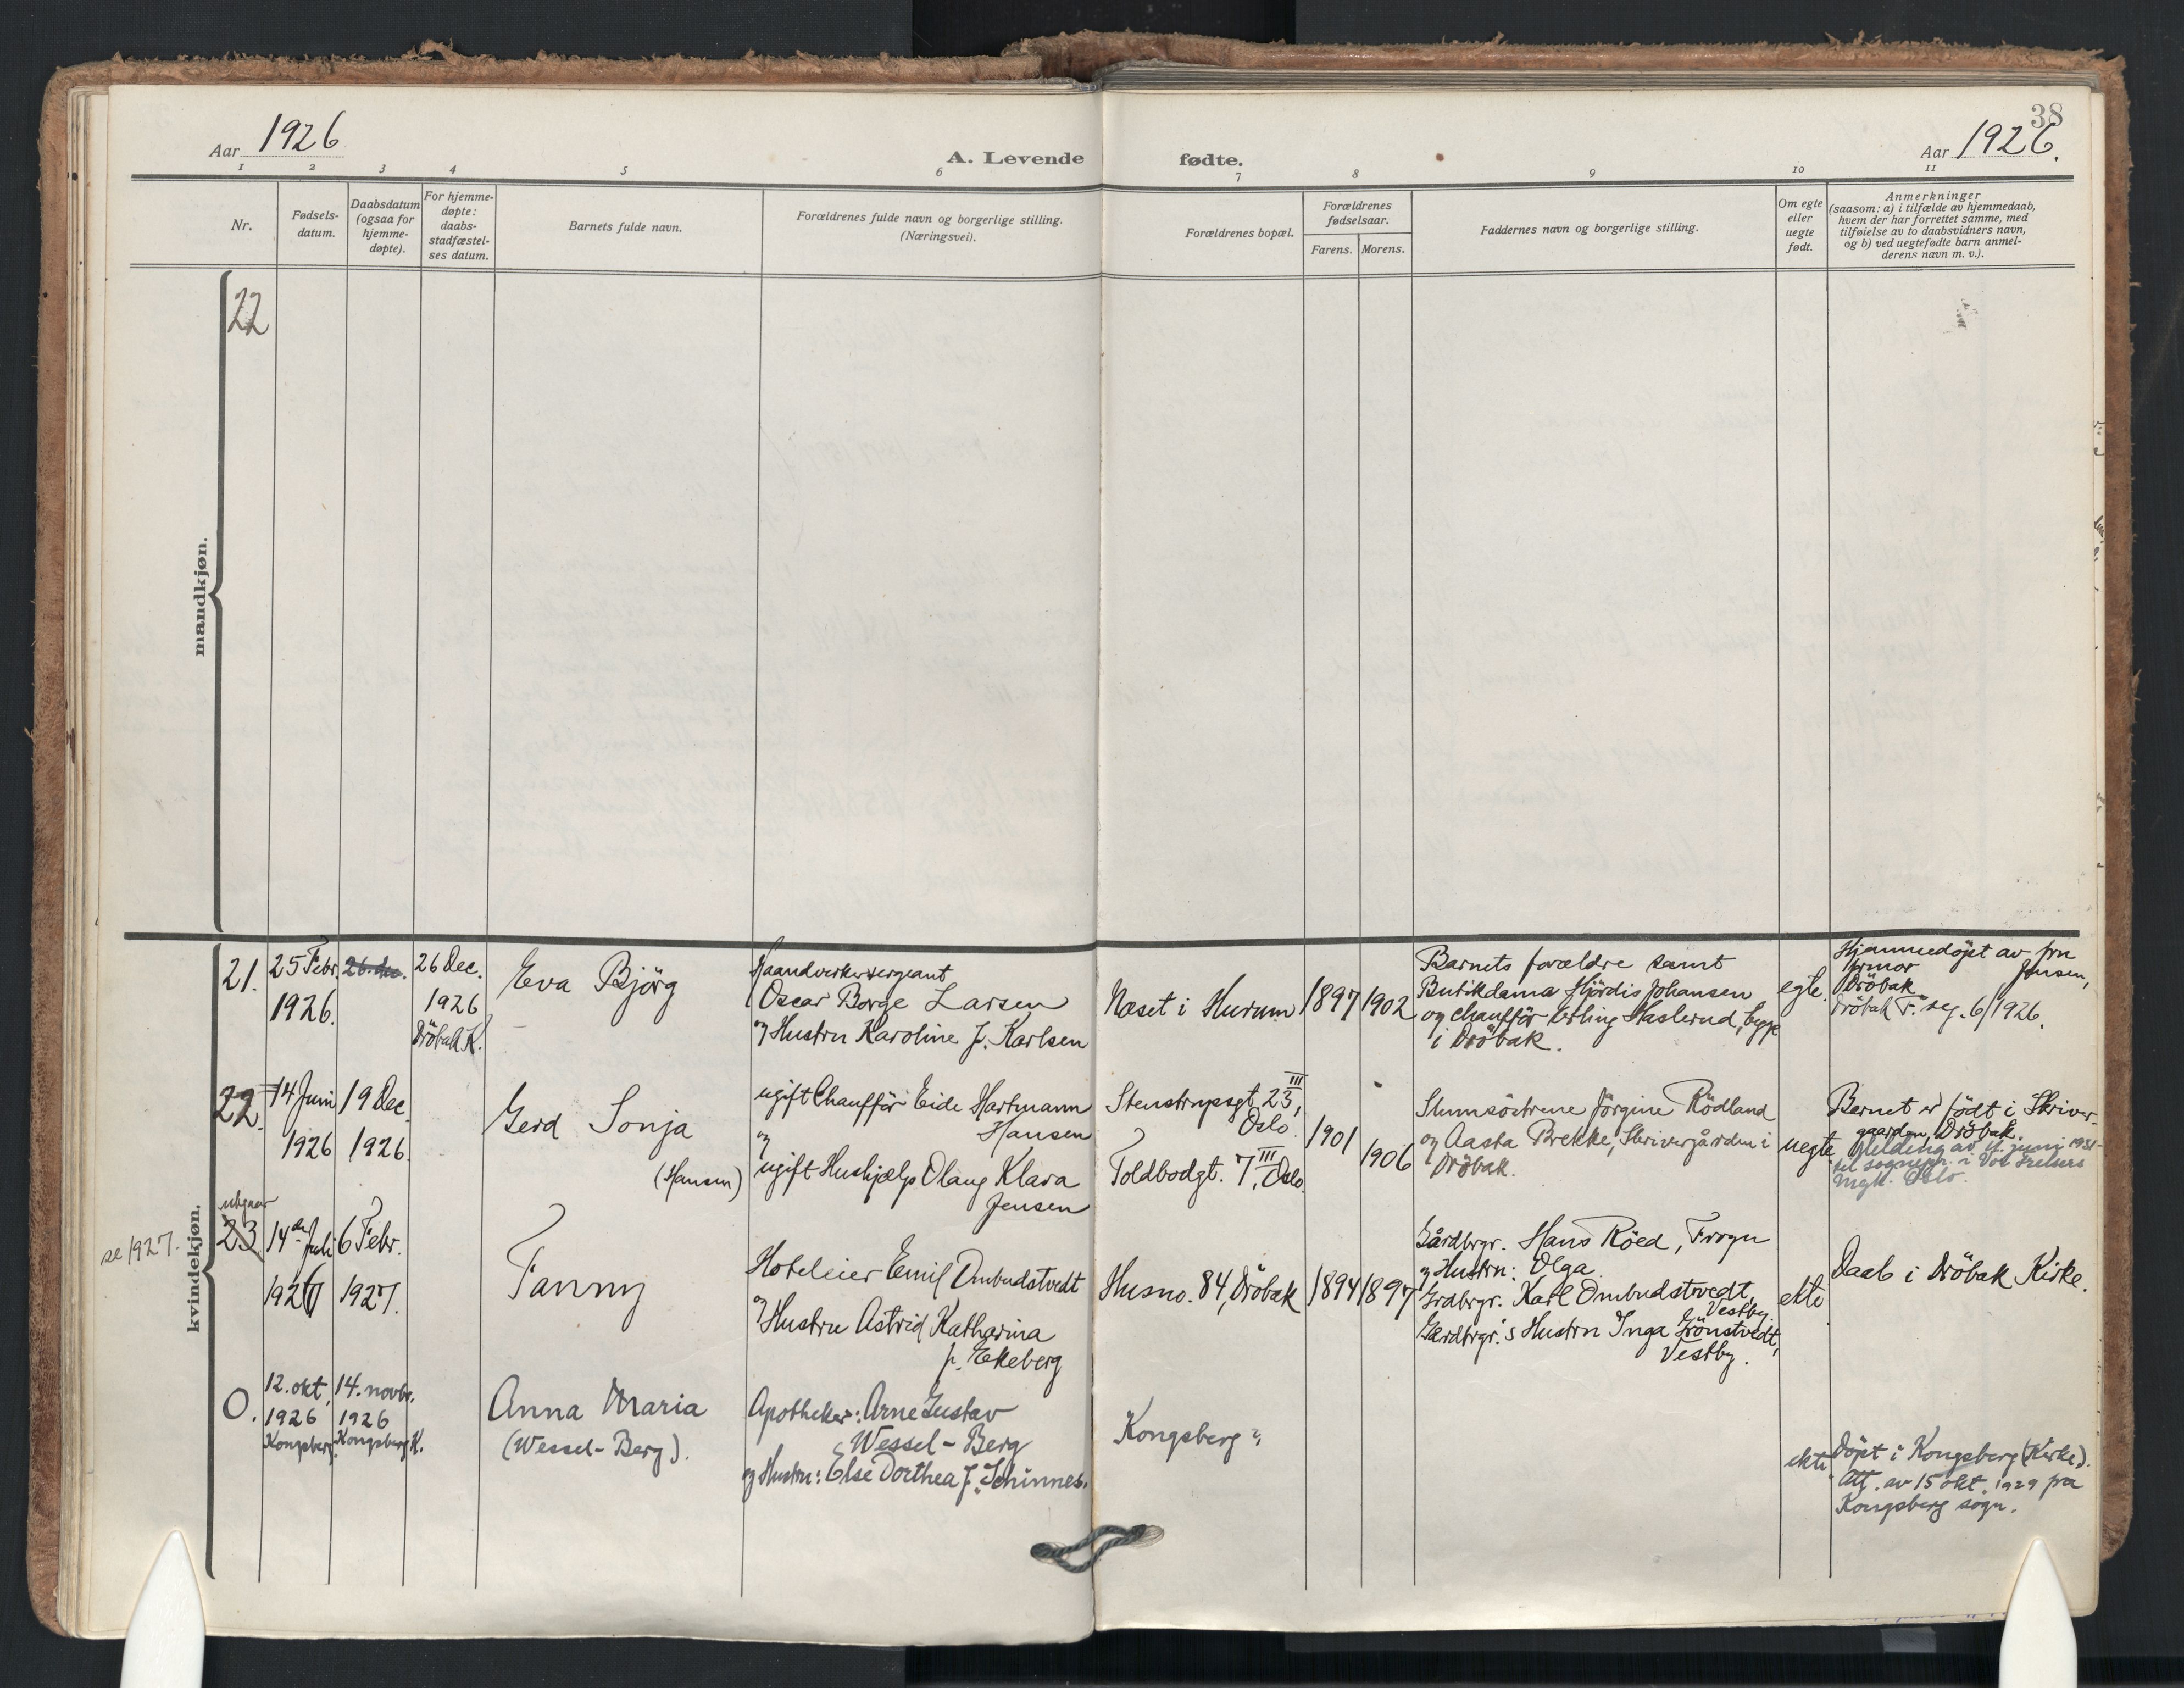 38
Aar 1926
A. Levende fødte.
Aar 1926.
1 2 3 4 5 6 7 8 9 10 11
Nr.
Fødsels-
datum.
Daabsdatum
(ogsaa for
hjemme-
døpte).
For hjemme-
døpte:
daabs-
stadfæstel-
ses datum.
Barnets fulde navn.
Forældrenes fulde navn og borgerlige stilling.
(Næringsvei).
Forældrenes bopæl.
Forældrenes
fødselsaar.
Farens. Morens.
Faddernes navn og borgerlige stilling.
Om egte
eller
uegte
født.
Anmerkninger
(saasom: a) i tilfælde av hjemmedaab,
hvem der har forrettet samme, med
tilføielse av to daabsvidners navn,
og b) ved uegtefødte barn anmel-
derens navn m. v.).
mandkjøn.
22
kvindekjøn.
21.
25 Febr.
1926.
26. dec.
26 Dec.
1926
Dröbak K.
Eva Bjørg
Haandverkersergeant
Oscar Borge Larsen
og Hustru Karoline f. Karlsen
Næset i Hurum
1897
1902
Barnets forældre samt
Butikdama Hjördis Johansen
og chauffør Erling Haslerud, begge
i Dröbak.
egte.
Hjemmedøpt av fru
Jensen,
Dröbak
Dröbak F. reg. 6/1926.
22.
14 Juni
1926
19 Dec.
1926.
Gerd Sonja
(Hansen)
ugift Chauffør Eide Hartmann
Hansen
og
ugift Hushjælp Olaug Klara
Jensen
Stenstrupsgt. 23, III
Oslo.
Toldbodgt. 7, III Oslo.
1901
1906
Slumsöstrene Jörgine Rödland
og Aasta Brekke, Skrivergården i
Dröbak.
uegte
Barnet er födt i Skriver-
gaarden, Dröbak.
Melding av 11. juni 1931
til sognepr. i Vor Frelsers
mgh. Oslo.
utgaar
23
se 1927.
14de Juli
1926
6 Febr.
1927.
Fanny
Hoteleier Emil Ombudstvedt
og Hustru Astrid Katharina
f. Ekeberg
Husno. 84, Dröbak
1894
1897
Gårdbrgr. Hans Röed, Frogn
og Hustru: Olga.
Grdbrgr. Karl Ombudstvedt,
Vestby
Gårdbrgr.'s Hustru Inga Grönstvedt,
Vestby.
ekte
Daab i Dröbak Kirke.
0.
12. okt.
1926
Kongsberg.
14. novbr.
1926
Kongsberg K.
Anna Maria
(Wessel-Berg).
Apotheker: Arne Gustav
Wessel-Berg
og Hustru: Else Dorthea f. Schinnes.
Kongsberg
ekte
Döpt i Kongsberg (Kirke).
Att. av 15 okt. 1929 fra
Kongsberg sogn.